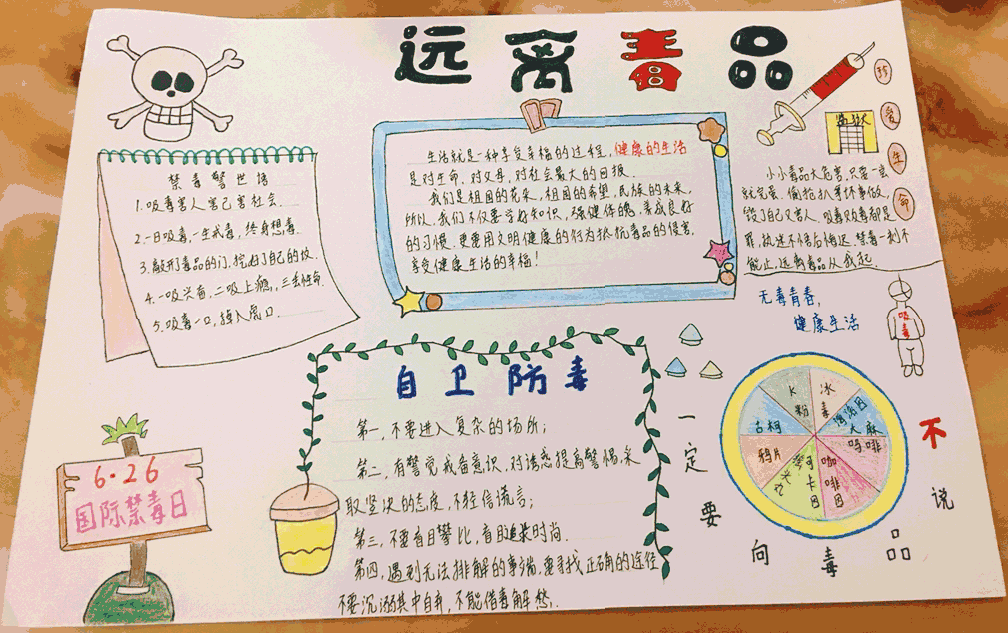 远离毒品
禁毒警世语
1.吸毒害人害己害社会.
2.一日吸毒,一生戒毒,终身想毒.
3.敲开毒品的门,挖好了自己的坟.
4.一吸兴奋,二吸上瘾,三丢性命.
5.吸毒一口,掉入虎口.
生活就是一种享受幸福的过程,健康的生活
是对生命,对父母,对社会最大的回报.
我们是祖国的花朵,祖国的希望,民族的未来,
所以,我们不仅要学好知识,强健体魄,养成良好
的习惯,更要用文明健康的行为抵抗毒品的侵害,
享受健康生活的幸福!
珍爱生命
小小毒品大危害,只要一尝
就完蛋.偷抢扒拿坏事做,
毁了自己又害人.吸毒贩毒都是
罪,执迷不悟后悔迟.禁毒一刻不
能止,远离毒品从我起.
无毒青春,
健康生活
吸毒
自卫防毒
第一,不要进入复杂的场所;
第二,有警觉戒备意识,对诱惑提高警惕,采
取坚决的态度,不轻信谎言;
第三,不要盲目攀比,盲目追求时尚.
第四,遇到无法排解的事端,要寻找正确的途径
不要沉溺其中自弃,不能借毒解愁.
6·26
国际禁毒日
K粉
冰毒
海洛因
大麻
吗啡
咖啡因
可卡因
鸦片
古柯
一定要向毒品说不